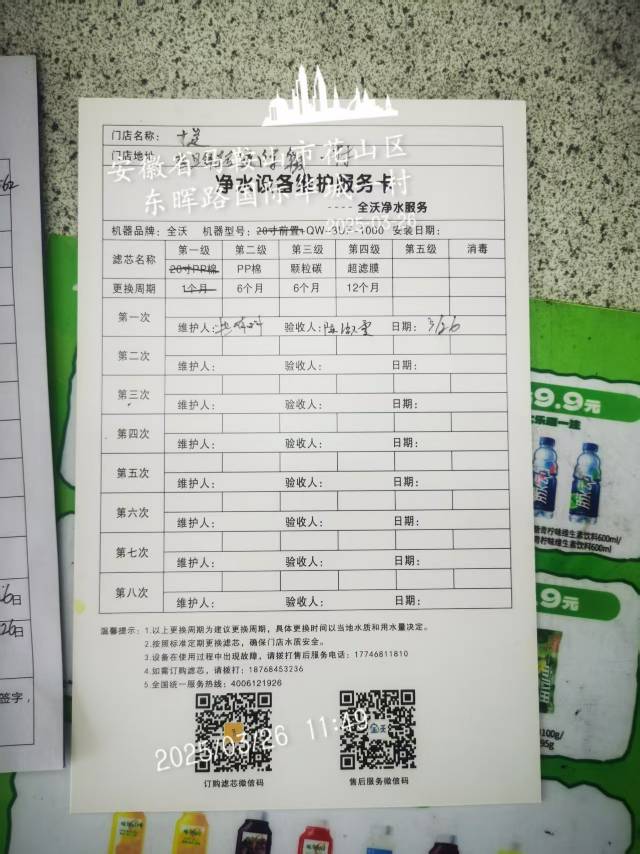 门店名称：
门店地址
安徽省马鞍山市花山区
净水设备维护服务卡
东晖路国际华城一村
---- 全沃净水服务
2025-03-26
机器品牌：全沃 机器型号：20寸前置+QW--3UF-1000 安装日期：
滤芯名称 第一级 第二级 第三级 第四级 第五级 消毒
20寸PP棉 PP棉 颗粒碳 超滤膜
更换周期 1个月 6个月 6个月 12个月
第一次
维护人： 验收人： 日期：3/26
第二次
维护人： 验收人： 日期：
第三次
维护人： 验收人： 日期：
第四次
维护人： 验收人： 日期：
第五次
维护人： 验收人： 日期：
第六次
维护人： 验收人： 日期：
第七次
维护人： 验收人： 日期：
第八次
维护人： 验收人： 日期：
温馨提示：1.以上更换周期为建议更换周期，具体更换时间以当地水质和用水量决定。
2.按照标准定期更换滤芯，确保门店水质安全。
3.设备在使用过程中出现故障，请拨打售后服务电话：17746811810
4.如需订购滤芯，请拨打：18768453236
5.全国统一服务热线：4006121926
全沃
2025/03/26 11:49
订购滤芯微信码 售后服务微信码
26日
26日
签字，
9.9元
乐顺一连
青柠味维生素饮料600ml/
青柠味维生素饮料600ml
.9元
100g/
95g